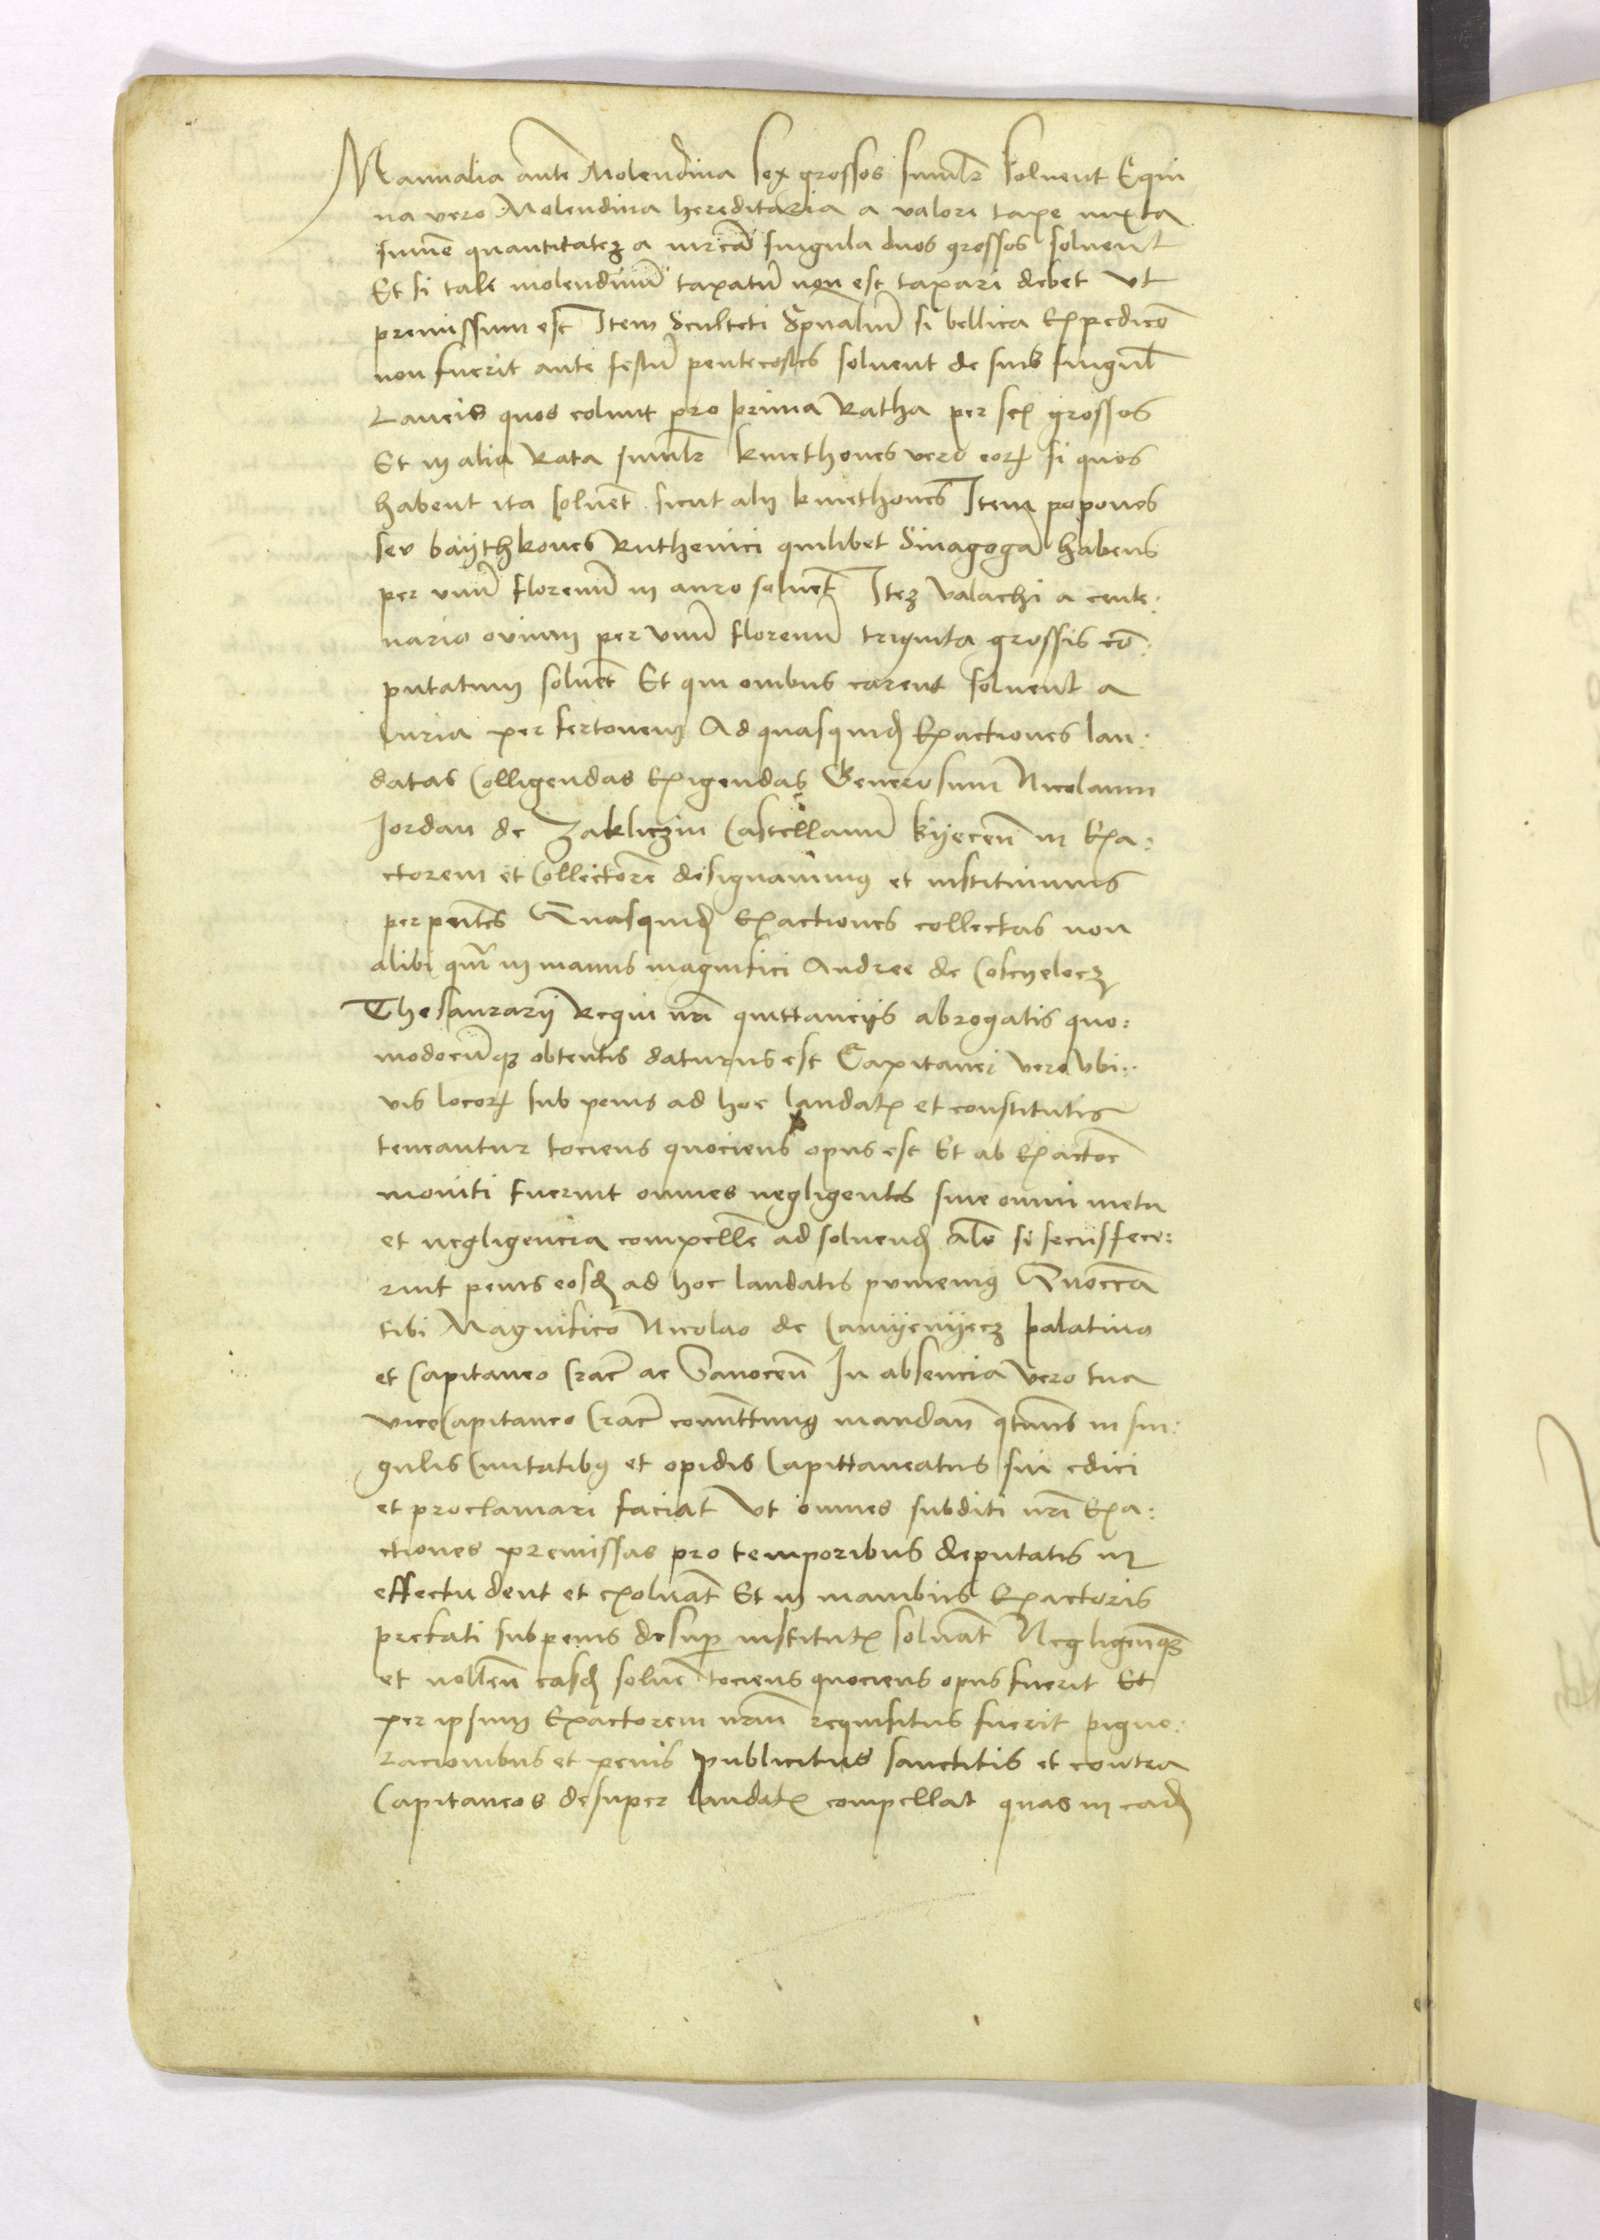 Manualia aute Molendina sex grossos similr soluent Equi
na vero Molendina hereditaria a valore taxe iuxta
summe quantitatez a mrca singula duos grossos soluent
Et si tale molendinu taxatu non est taxari debet vt
premissum est Item Sculteti Spualiu si bellica Expedico
non fuerit ante festu pentecostes soluent de suis singul
Laneis quos colunt pro prima Ratha per sex grossos
Et in alia Rata similr kmethones vero eor si quos
habent ita soluet sicut alij kmethones Item popones
seu baythkones Ruthenici quilibet Sinagoga habens
per vnu florenu in auro soluet Itez Valachi a cente:
nario ovium per vnu florenu triginta grossis co:
putatum soluet Et qui ouibus carent soluent a
curia per fertonem Ad quasquid Exactiones lau:
datas Colligendas Exigendas Generosum Nicolaum
Jordan de Zakliczin Castellanu byecen in Exa:
ctorem et Collectore designauimus et instituimus
per pntes Quasquid Exactiones collectas non
alibi qm in manus magnifici Andree de Coscyelecz
Thesaurarij Regni nri quittancijs abrogatis quo:
modocuqz obtentis daturus est Capitanei vero vbi:
vis locor sub penis ad hoc laudat et constitutis
teneantur tociens quociens opus est Et ab Exactore
moniti fuerint omnes negligentes sine omni metu
et negligencia compelle ad soluend Alr si secusfece:
rint penis eosd ad hoc laudatis puniemus Quocca
tibi Magnifico Nicolao de Camyenyecz palatino
et Capitaneo Crac ac Sanocen In absencia vero tua
viceCapitaneo Crac comittimus mandan qtnus in sin:
gulis Ciuitatibus et opidis Capittaneatus sui edici
et proclamari faciat Vt omnes subditi nri Exa:
ctiones premissas pro temporibus deputatis in
effectu dent et exoluat Et in manibus Exactoris
prefati sub penis desup institut soluat Negligenqz
et nollen easd solue tociens quociens opus fuerit Et
per ipsum Exactorem nrum requisitus fuerit pigno:
racionibus et penis publicitus sanctitis et contra
Capitaneos desuper laudat compellat quas in ead